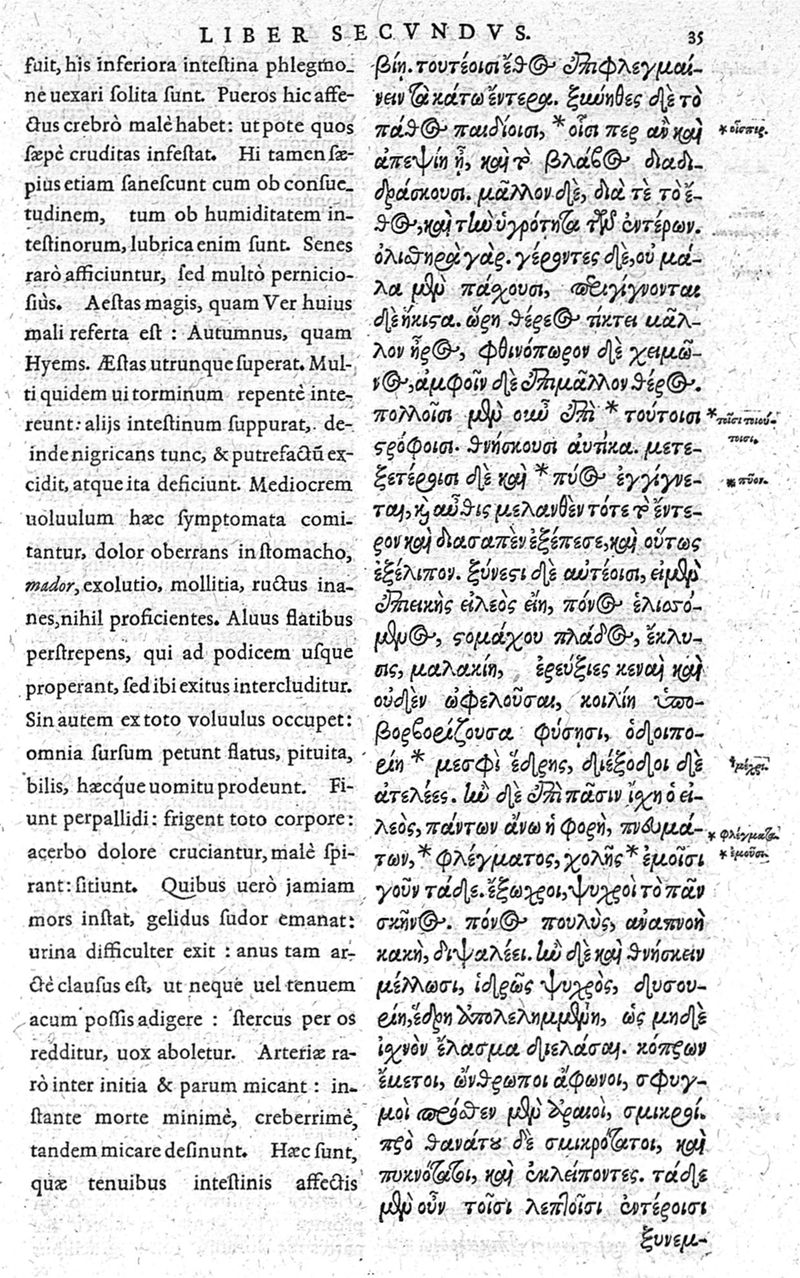 LIBER SECVNDVS. 35
fuit, his inferiora intestina phlegmo-
ne uexari solita sunt. Pueros hic affe-
ctus crebrò malè habet: ut pote quos
sæpè cruditas infestat. Hi tamen sæ-
pius etiam sanescunt cum ob consue-
tudinem, tum ob humiditatem in-
testinorum, lubrica enim sunt. Senes
rarò afficiuntur, sed multò pernicio-
siùs. Aestas magis, quam Ver huius
mali referta est: Autumnus, quam
Hyems. Æstas utrunque superat. Mul-
ti quidem ui torminum repentè inte-
reunt: alijs intestinum suppurat, de-
inde nigricans tunc, & putrefactũ ex-
cidit, atque ita deficiunt. Mediocrem
uoluulum hæc symptomata comi-
tantur, dolor oberrans in stomacho,
mador, exolutio, mollitia, ructus ina-
nes, nihil proficientes. Aluus flatibus
perstrepens, qui ad podicem usque
properant, sed ibi exitus intercluditur.
Sin autem ex toto voluulus occupet:
omnia sursum petunt flatus, pituita,
bilis, hæcq́ue uomitu prodeunt. Fi-
unt perpallidi: frigent toto corpore:
acerbo dolore cruciantur, malè spi-
rant: sitiunt. Quibus uerò jamiam
mors instat, gelidus sudor emanat:
urina difficulter exit: anus tam ar-
ctè clausus est, ut neque uel tenuem
acum possis adigere: stercus per os
redditur, uox aboletur. Arteriæ ra-
rò inter initia & parum micant: in-
stante morte minimè, creberrimè,
tandem micare desinunt. Hæc sunt,
quæ tenuibus intestinis affectis
βίη. τουτέοισι ἔθος ἐπιφλεγμαί-
νειν τὰ κάτω ἔντερα. ξυνήθες δὲ τὸ
πάθος παιδίοισι, *οἷσι περ ἂν καὶ
ἀπεψίη ᾖ, καὶ τὸ βλάβος διαδι-
δράσκουσι. μᾶλλον δὲ, διὰ τε τὸ ἔ-
θος, καὶ τὴν ὑγρότητα τῶν ἐντέρων.
ὀλισθηρὰ γάρ. γέροντες δὲ, οὐ μά-
λα μὲν πάσχουσι, περιγίγνονται
δὲ ἥκιστα. ὥρη θέρεος τίκτει μᾶλ-
λον ἦρος, φθινόπωρον δὲ χειμῶ-
νος, ἀμφοῖν δὲ ἐπιμᾶλλον θέρος.
πολλοῖσι μὲν οὖν ἐπὶ * τούτοισι
στρόφοισι. θνήσκουσι αὐτίκα. μετε-
ξετέροισι δὲ καὶ *πύος ἐγγίγνε-
ται, καὶ αὖθις μελανθὲν τότε τὸ ἔντε-
ρον καὶ διασαπὲν ἐξέπεσε, καὶ οὕτως
ἐξέλιπον. ξύνεστι δὲ αὐτέοισι, εἰ μὲν
ἐπιεικὴς εἰλεὸς εἴη, πόνος ἑλισσό-
μενος, στομάχου πλάδος, ἔκλυ-
σις, μαλακίη, ἐρεύξιες κεναὶ καὶ
οὐδὲν ὠφελοῦσαι, κοιλίη ὑπο-
βορβορίζουσα φύσῃσι, ὁδοιπο-
ρίη * μεσφὶ ἕδρης, διέξοδοι δὲ
ἀτελέες. ἢν δὲ ἐπὶ πᾶσιν ἴσχῃ ὁ εἰ-
λεὸς, πάντων ἄνω ἡ φορὴ, πνευμά-
των, *φλέγματος, χολῆς *ἐμοῖσι
γοῦν τάδε. ἔξωχροι, ψυχροὶ τὸ πᾶν
σκῆνος. πόνος πουλὺς, ἀναπνοὴ
κακὴ, διψαλέει. ἢν δὲ καὶ θνήσκειν
μέλλωσι, ἱδρῶς ψυχρὸς, δυσου-
ρίη, ἕδρη ἀπολελημμένη, ὡς μηδὲ
ἰσχνὸν ἔλασμα διελάσαι. κόπρων
ἔμετοι, ὥνθρωποι ἄφωνοι, σφυγ-
μοὶ πρόσθεν μὲν ἀραιοὶ, σμικροί.
πρὸ θανάτου δὲ σμικρότατοι, καὶ
πυκνότατοι, καὶ ἐκλείποντες. τάδε
μὲν οὖν τοῖσι λεπτοῖσι ἐντέροισι
ξυνεμ-
*οἷσπερ.
*τοῖσι τοιού-
τοισι.
*πῦον.
*μέχρι.
*φλέγματα.
*ἐμοῦσι.